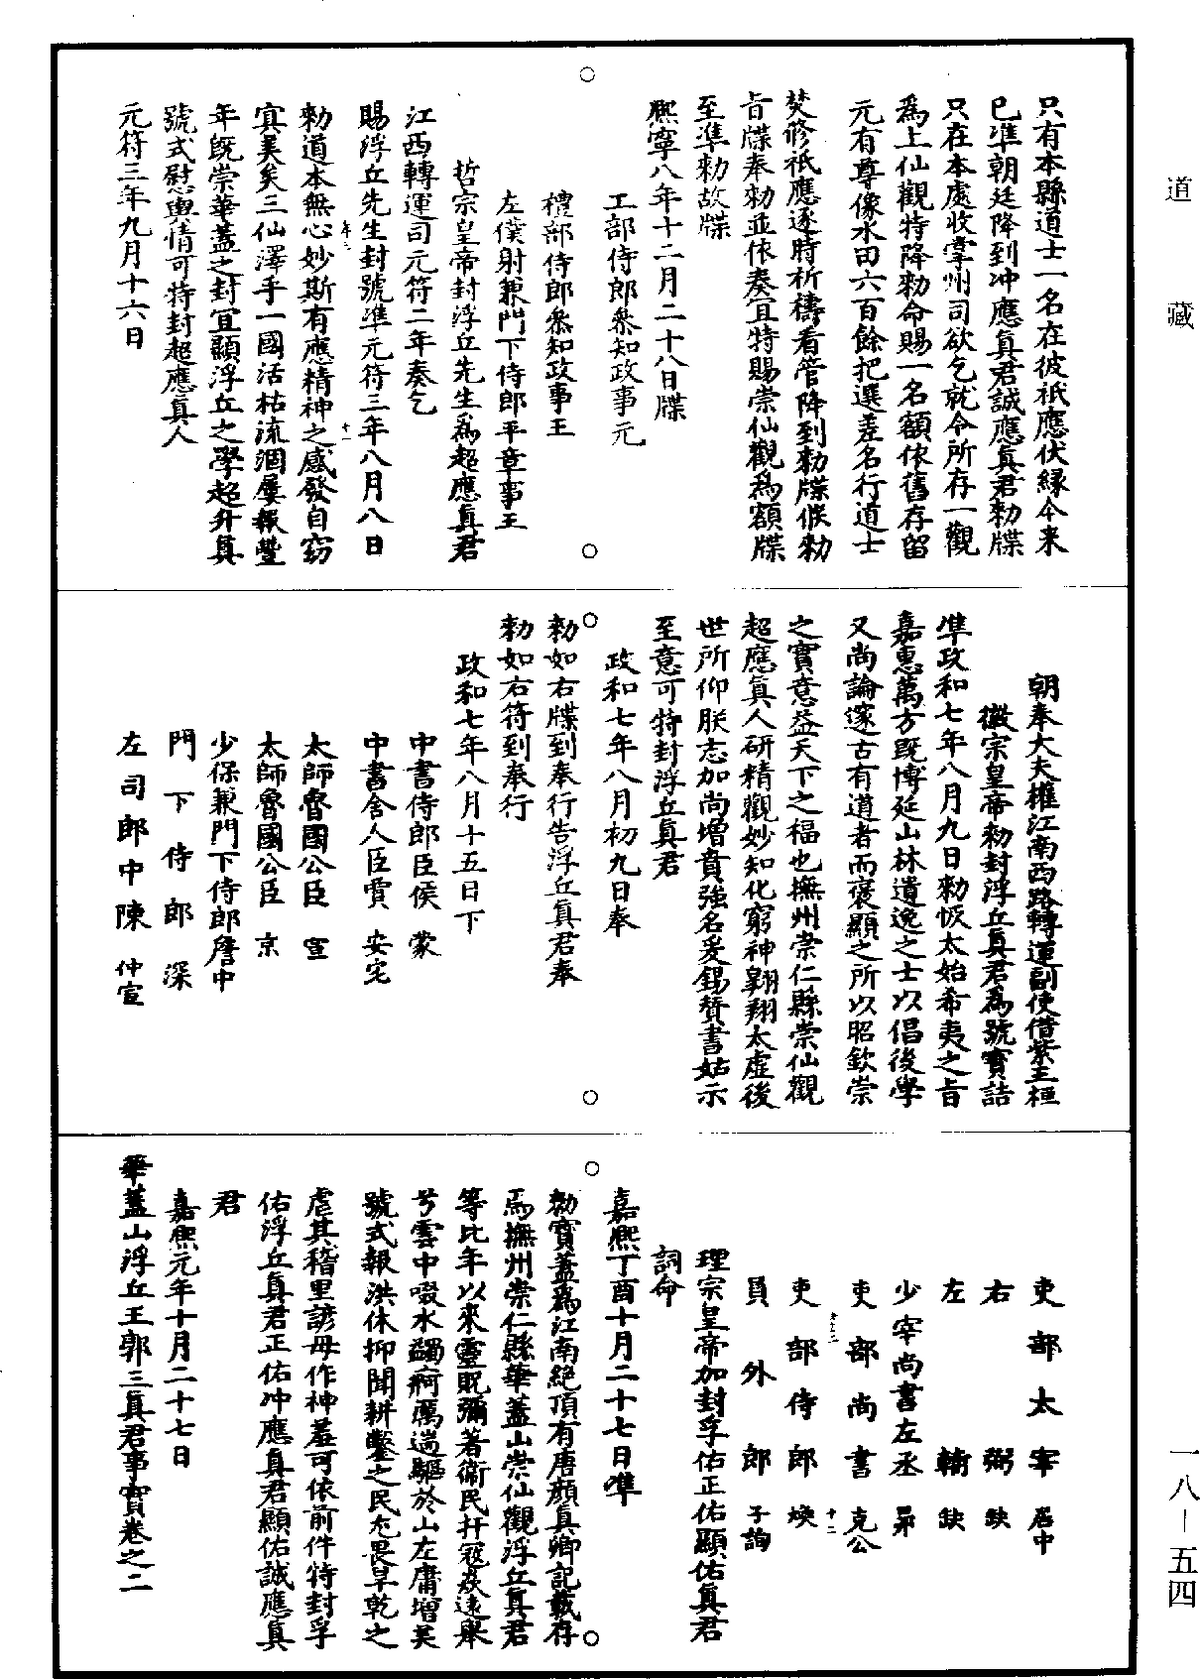 道藏
只有本縣道士一名在彼祇應伏緣今来
已準朝廷降到冲應真君誠應真君勑牒
只在本處收掌州司欲乞就今所存一觀
為上仙觀特降勑命賜一名額依舊存留
元有尊像水田六百餘把選差名行道士
焚修祇應逐時祈禱看管降到勑牒候勑
旨牒奉勑並依奏宜特賜崇仙觀為額牒
至準勑故牒
熙寧八年十二月二十八日牒
工部侍郎叅知政事元
禮部侍郎叅知政事王
左僕射兼門下侍郎平章事王
哲宗皇帝封浮丘先生為超應真君
江西轉運司元符二年奏乞
賜浮丘先生封號準元符三年八月八日
勑道本無心妙斯有應精神之感發自窈
冥美矣三仙澤乎一國活枯流涸屢報豐
年旣崇華蓋之封宜顯浮丘之學超升真
號式慰輿情可特封超應真人
元符三年九月十六日
朝奉大夫權江南西路轉運副使借紫王桓
徽宗皇帝勑封浮丘真君為號實誥
準政和七年八月九日勑恢太始希夷之旨
嘉惠萬方旣博延山林遺逸之士以倡後學
又尚論邃古有道者而褒顯之所以昭欽崇
之實意益天下之福也撫州崇仁縣崇仙觀
超應真人研精觀妙知化窮神翱翔太虛後
世所仰朕志加尚增賁強名爰錫贊書姑示
至意可特封浮丘真君
政和七年八月初九日奉
勑如右牒到奉行告浮丘真君奉
勑如右符到奉行
政和七年八月十五日下
中書侍郎臣侯蒙
中書舍人臣賈安宅
太師魯國公臣宣
太師魯國公臣京
少保兼門下侍郎詹中
門下侍郎深
左司郎中陳仲宣
吏部太宰居中
右弼缺
左輔缺
少宰尚書左丞昴
吏部尚書克公
吏部侍郎煥
員外郎子詢
理宗皇帝加封孚佑正佑顯佑真君
詞命
嘉熙丁酉十月二十七日準
勑寶蓋為江南絶頂有唐顔真卿記載存
焉撫州崇仁縣華蓋山崇仙觀浮丘真君
等比年以來靈貺彌著衞民扞寇叅遠舉
兮雲中啜水蠲痾厲遄驅於山左庸增美
號式報洪休抑聞耕鑿之民尤畏旱乾之
虐其稽里諺毋作神羞可依前件特封孚
佑浮丘真君正佑冲應真君顯佑誠應真
君
嘉熙元年十月二十七日
華蓋山浮丘王郭三真君事實卷之二
一八－五四